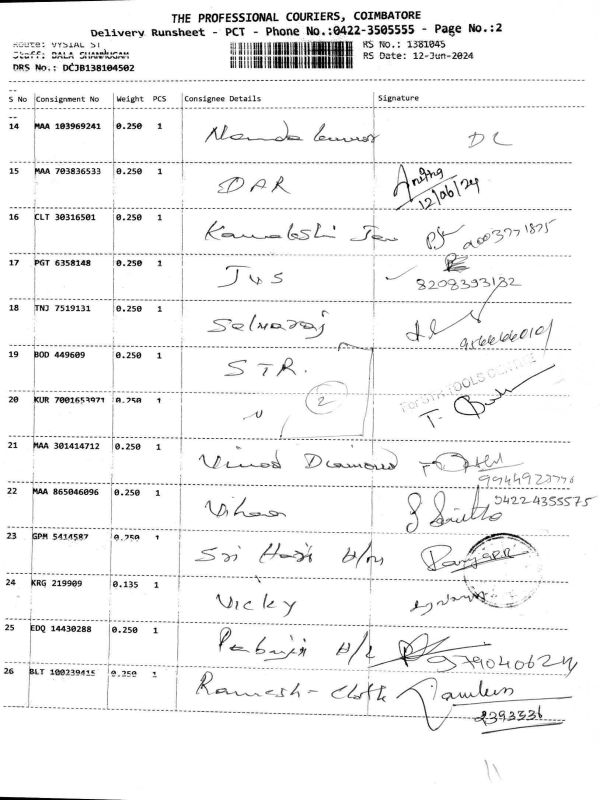 THE PROFESSIONAL COURIERS, COIMBATORE
Delivery Runsheet - PCT - Phone No.:0422-3505555 - Page No.:2
Route: VYSIAL ST
RS No.: 1381045
Staff: BALA SHANMUGAM
RS Date: 12-Jun-2024
DRS No.: DCJB138104502
S No Consignment No Weight PCS Consignee Details Signature
14 MAA 103969241 0.250 1 Nanda kumar DC
15 MAA 703836533 0.250 1 DAR Anitha
12/06/24
16 CLT 30316501 0.250 1
17 PGT 6358148 0.250 1 TVS
8208393132
18 TNJ 7519131 0.250 1 Selvaraj
19 BOD 449609 0.250 1 STR.
20 KUR 7001653971 0.250 1 2
TOOLS CENTRE
21 MAA 301414712 0.250 1 Vinod Diamond
22 MAA 865046096 0.250 1 Vihaa
04224355575
23 GPM 5414587 0.250 1 Sri Hari H/W
24 KRG 219909 0.135 1 Vicky
25 EDQ 14430288 0.250 1
26 BLT 100239415 0.250 1 Ramesh - Cloth
2393336
11